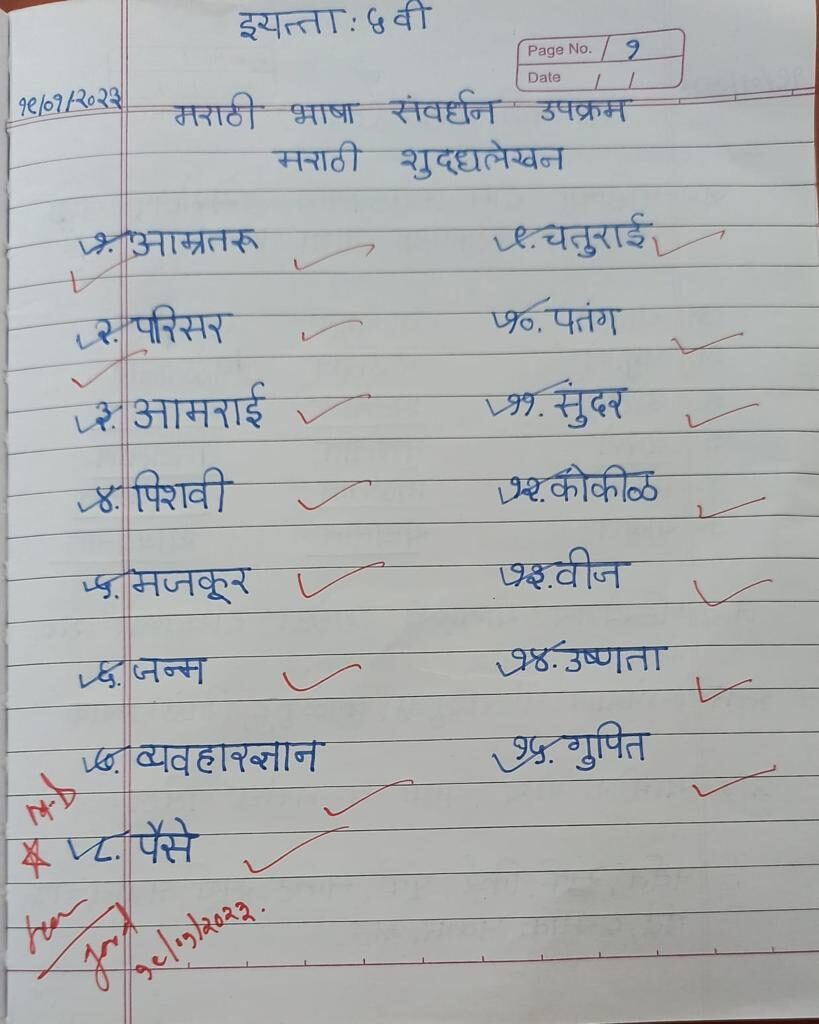 इयत्ता : ६ वी
Page No. १
Date / /
१९/०१/२०२३
मराठी भाषा संवर्धन उपक्रम
मराठी शुद्धलेखन
१. आम्रतरू
२. परिसर
३. आमराई
४. पिशवी
५. मजकूर
६. जन्म
७. व्यवहारज्ञान
८. पैसे
९. चतुराई
१०. पतंग
११. सुंदर
१२. कोकीळ
१३. वीज
१४. उष्णता
१५. गुपित
Good
१९/०१/२०२३.